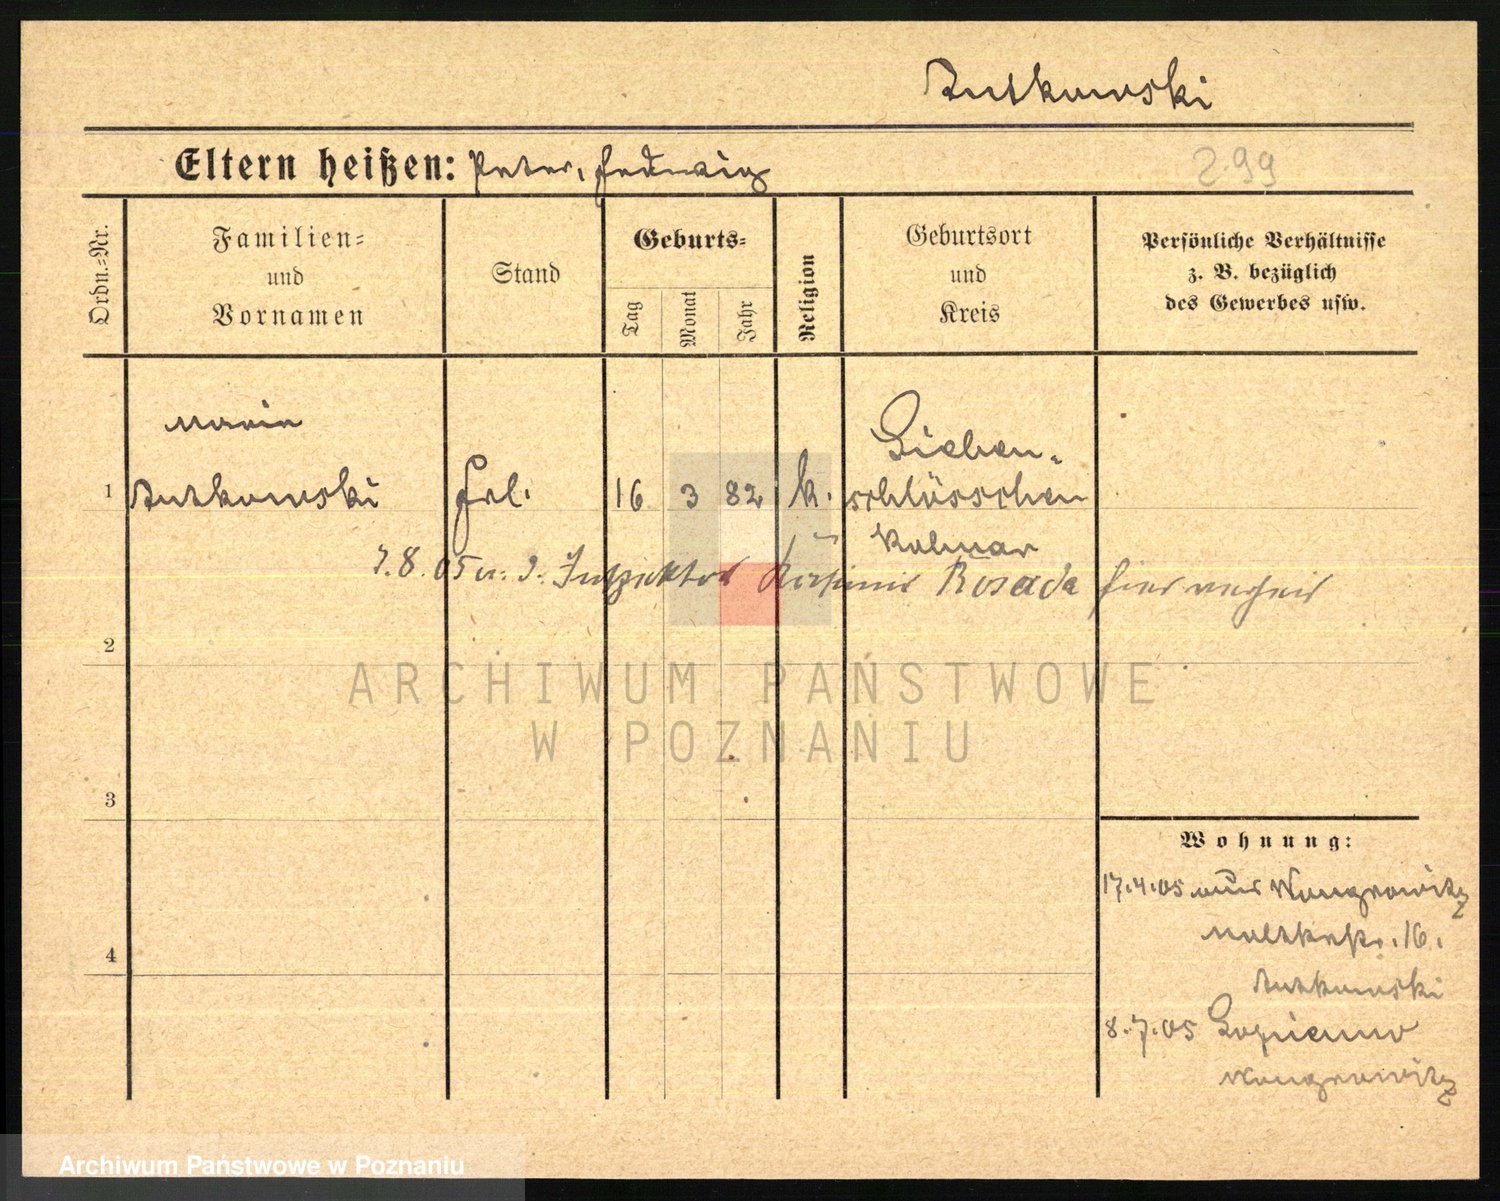 Rutkowski
Eltern heißen: Peter, Hedwig
299
Ordn.=Nr.
Familien=
und
Vornamen
Stand
Geburts=
Tag
Monat
Jahr
Religion
Geburtsort
und
Kreis
Persönliche Verhältnisse
z. B. bezüglich
des Gewerbes usw.
Marie
1 Rutkowski Frl. 16 3 82 k. Lieben-
schlösschen
Kolmar
7.8.05 m. d. Inspektor Kasimir Rosada hier verheir
2
ARCHIWUM PAŃSTWOWE
W POZNANIU
3
Wohnung:
17.4.05 aus Wongrowitz
Moltkestr. 16.
Rutkowski
4
8.7.05 Lopienno
Wongrowitz
Archiwum Państwowe w Poznaniu